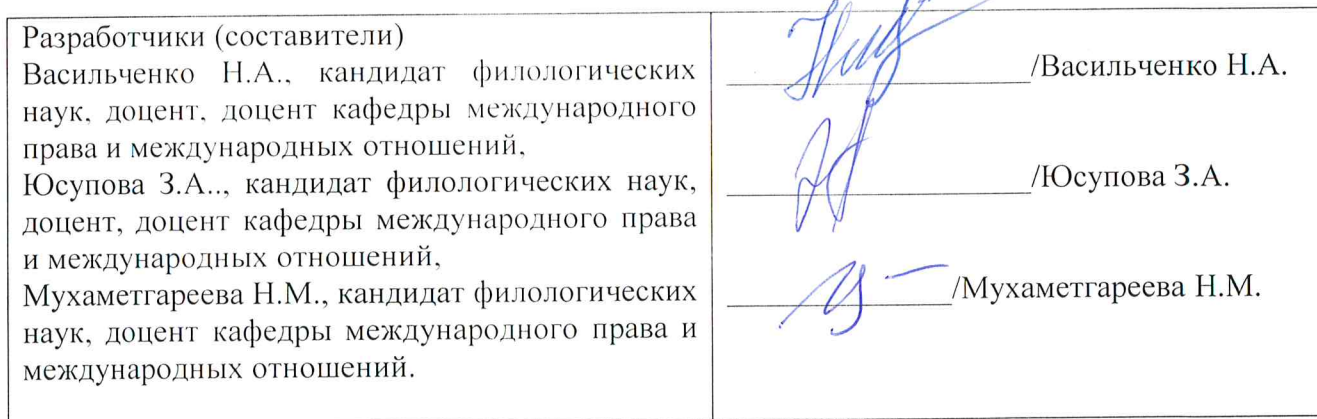 Разработчики (составители)
Васильченко Н.А., кандидат филологических
наук, доцент, доцент кафедры международного
права и международных отношений,
Юсупова З.А.., кандидат филологических наук,
доцент, доцент кафедры международного права
и международных отношений,
Мухаметгареева Н.М., кандидат филологических
наук, доцент кафедры международного права и
международных отношений.
/Васильченко Н.А.
/Юсупова З.А.
/Мухаметгареева Н.М.